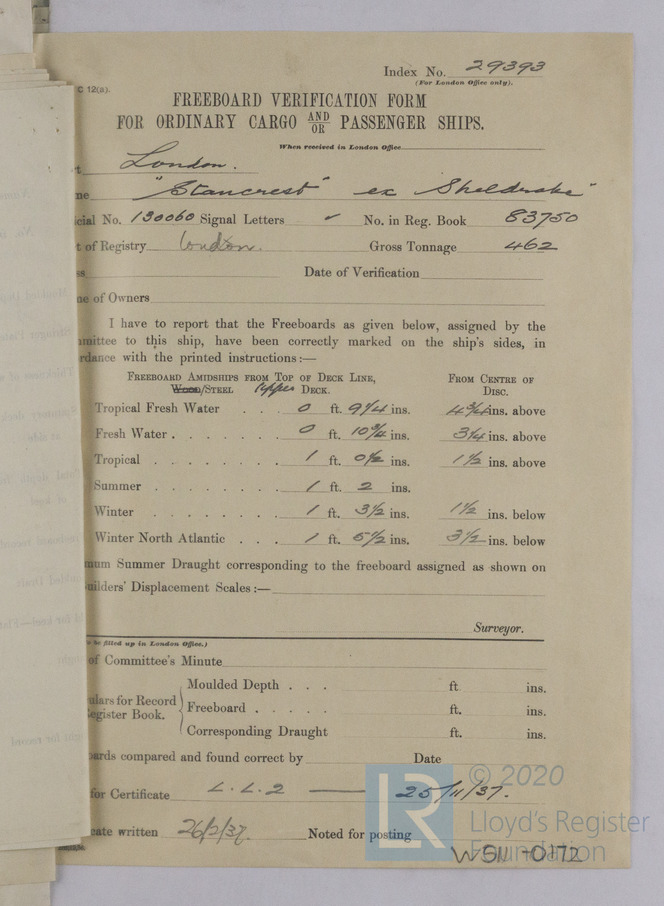 Index No. 29393
(For London Office only).
C 12(a).
FREEBOARD VERIFICATION FORM
FOR ORDINARY CARGO AND/OR PASSENGER SHIPS.
When received in London Office
t London.
me "Stancrest" ex Sheldrake
cial No. 130060 Signal Letters No. in Reg. Book 83750
t of Registry London. Gross Tonnage 462
ss Date of Verification
ne of Owners
I have to report that the Freeboards as given below, assigned by the
mmittee to this ship, have been correctly marked on the ship's sides, in
rdance with the printed instructions:—
FREEBOARD AMIDSHIPS FROM TOP OF DECK LINE, FROM CENTRE OF
WOOD/STEEL Upper DECK. DISC.
Tropical Fresh Water . . . 0 ft. 9 1/4 ins. 4 3/4 ins. above
Fresh Water . . . . . . . 0 ft. 10 3/4 ins. 3 1/4 ins. above
Tropical . . . . . . . . 1 ft. 0 1/2 ins. 1 1/2 ins. above
Summer . . . . . . . . 1 ft. 2 ins.
Winter . . . . . . . . 1 ft. 3 1/2 ins. 1 1/2 ins. below
Winter North Atlantic . . . 1 ft. 5 1/2 ins. 3 1/2 ins. below
mum Summer Draught corresponding to the freeboard assigned as shown on
uilders' Displacement Scales :—
Surveyor.
o be filled up in London Office.)
of Committee's Minute
Moulded Depth . . . ft. ins.
ulars for Record
Freeboard . . . . . ft. ins.
egister Book.
Corresponding Draught ft. ins.
oards compared and found correct by Date
for Certificate L.L.2 — 25/11/37.
cate written 26/2/37. Noted for posting
LR
© 2020
Lloyd's Register
Foundation
WSN-0172